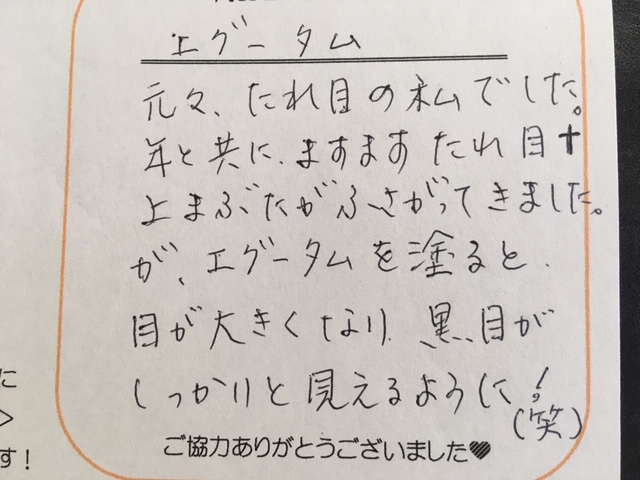 エグータム
元々、たれ目の私でした。
年と共に、ますますたれ目+
上まぶたがふさがってきました。
が、エグータムを塗ると、
目が大きくなり、黒目が
しっかりと見えるように!
(笑)
ご協力ありがとうございました♥
に
>
す!